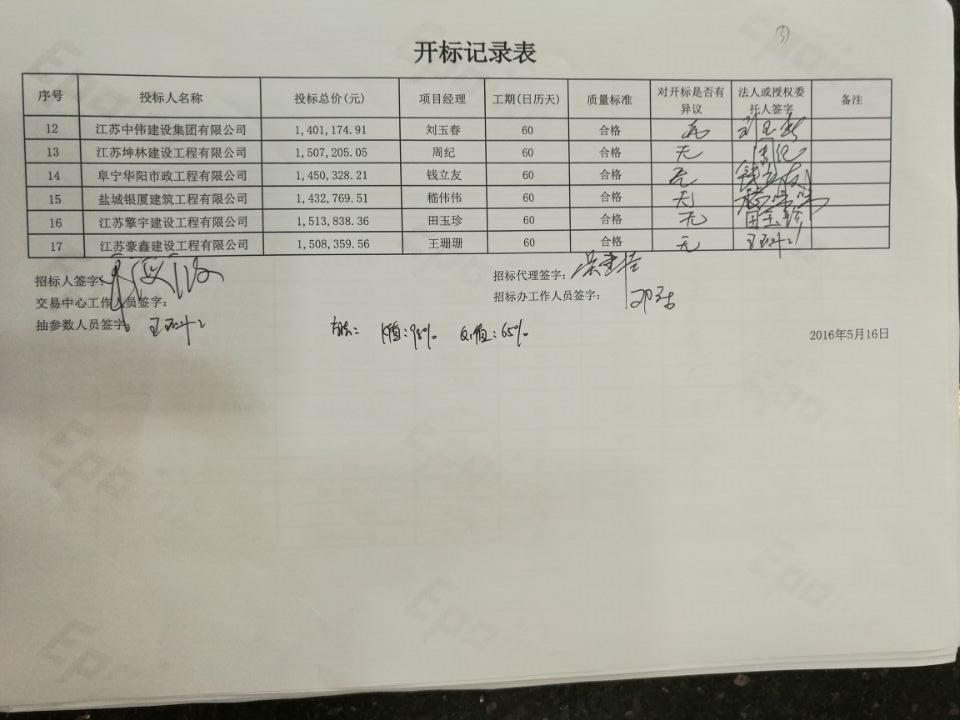 ③
开标记录表
序号 投标人名称 投标总价(元) 项目经理 工期(日历天) 质量标准 对开标是否有异议 法人或授权委托人签字 备注
12 江苏中伟建设集团有限公司 1,401,174.91 刘玉春 60 合格 无 刘玉春
13 江苏坤林建设工程有限公司 1,507,205.05 周纪 60 合格 无 周纪
14 阜宁华阳市政工程有限公司 1,450,328.21 钱立友 60 合格 无 钱立友
15 盐城银厦建筑工程有限公司 1,432,769.51 嵇伟伟 60 合格 无
16 江苏擎宇建设工程有限公司 1,513,838.36 田玉珍 60 合格 无 田玉珍
17 江苏豪鑫建设工程有限公司 1,508,359.56 王珊珊 60 合格 无 王珊珊
招标人签字: 招标代理签字:
交易中心工作人员签字: 招标办工作人员签字:
抽参数人员签字: 王珊珊 K值:98% Q值:65%
2016年5月16日